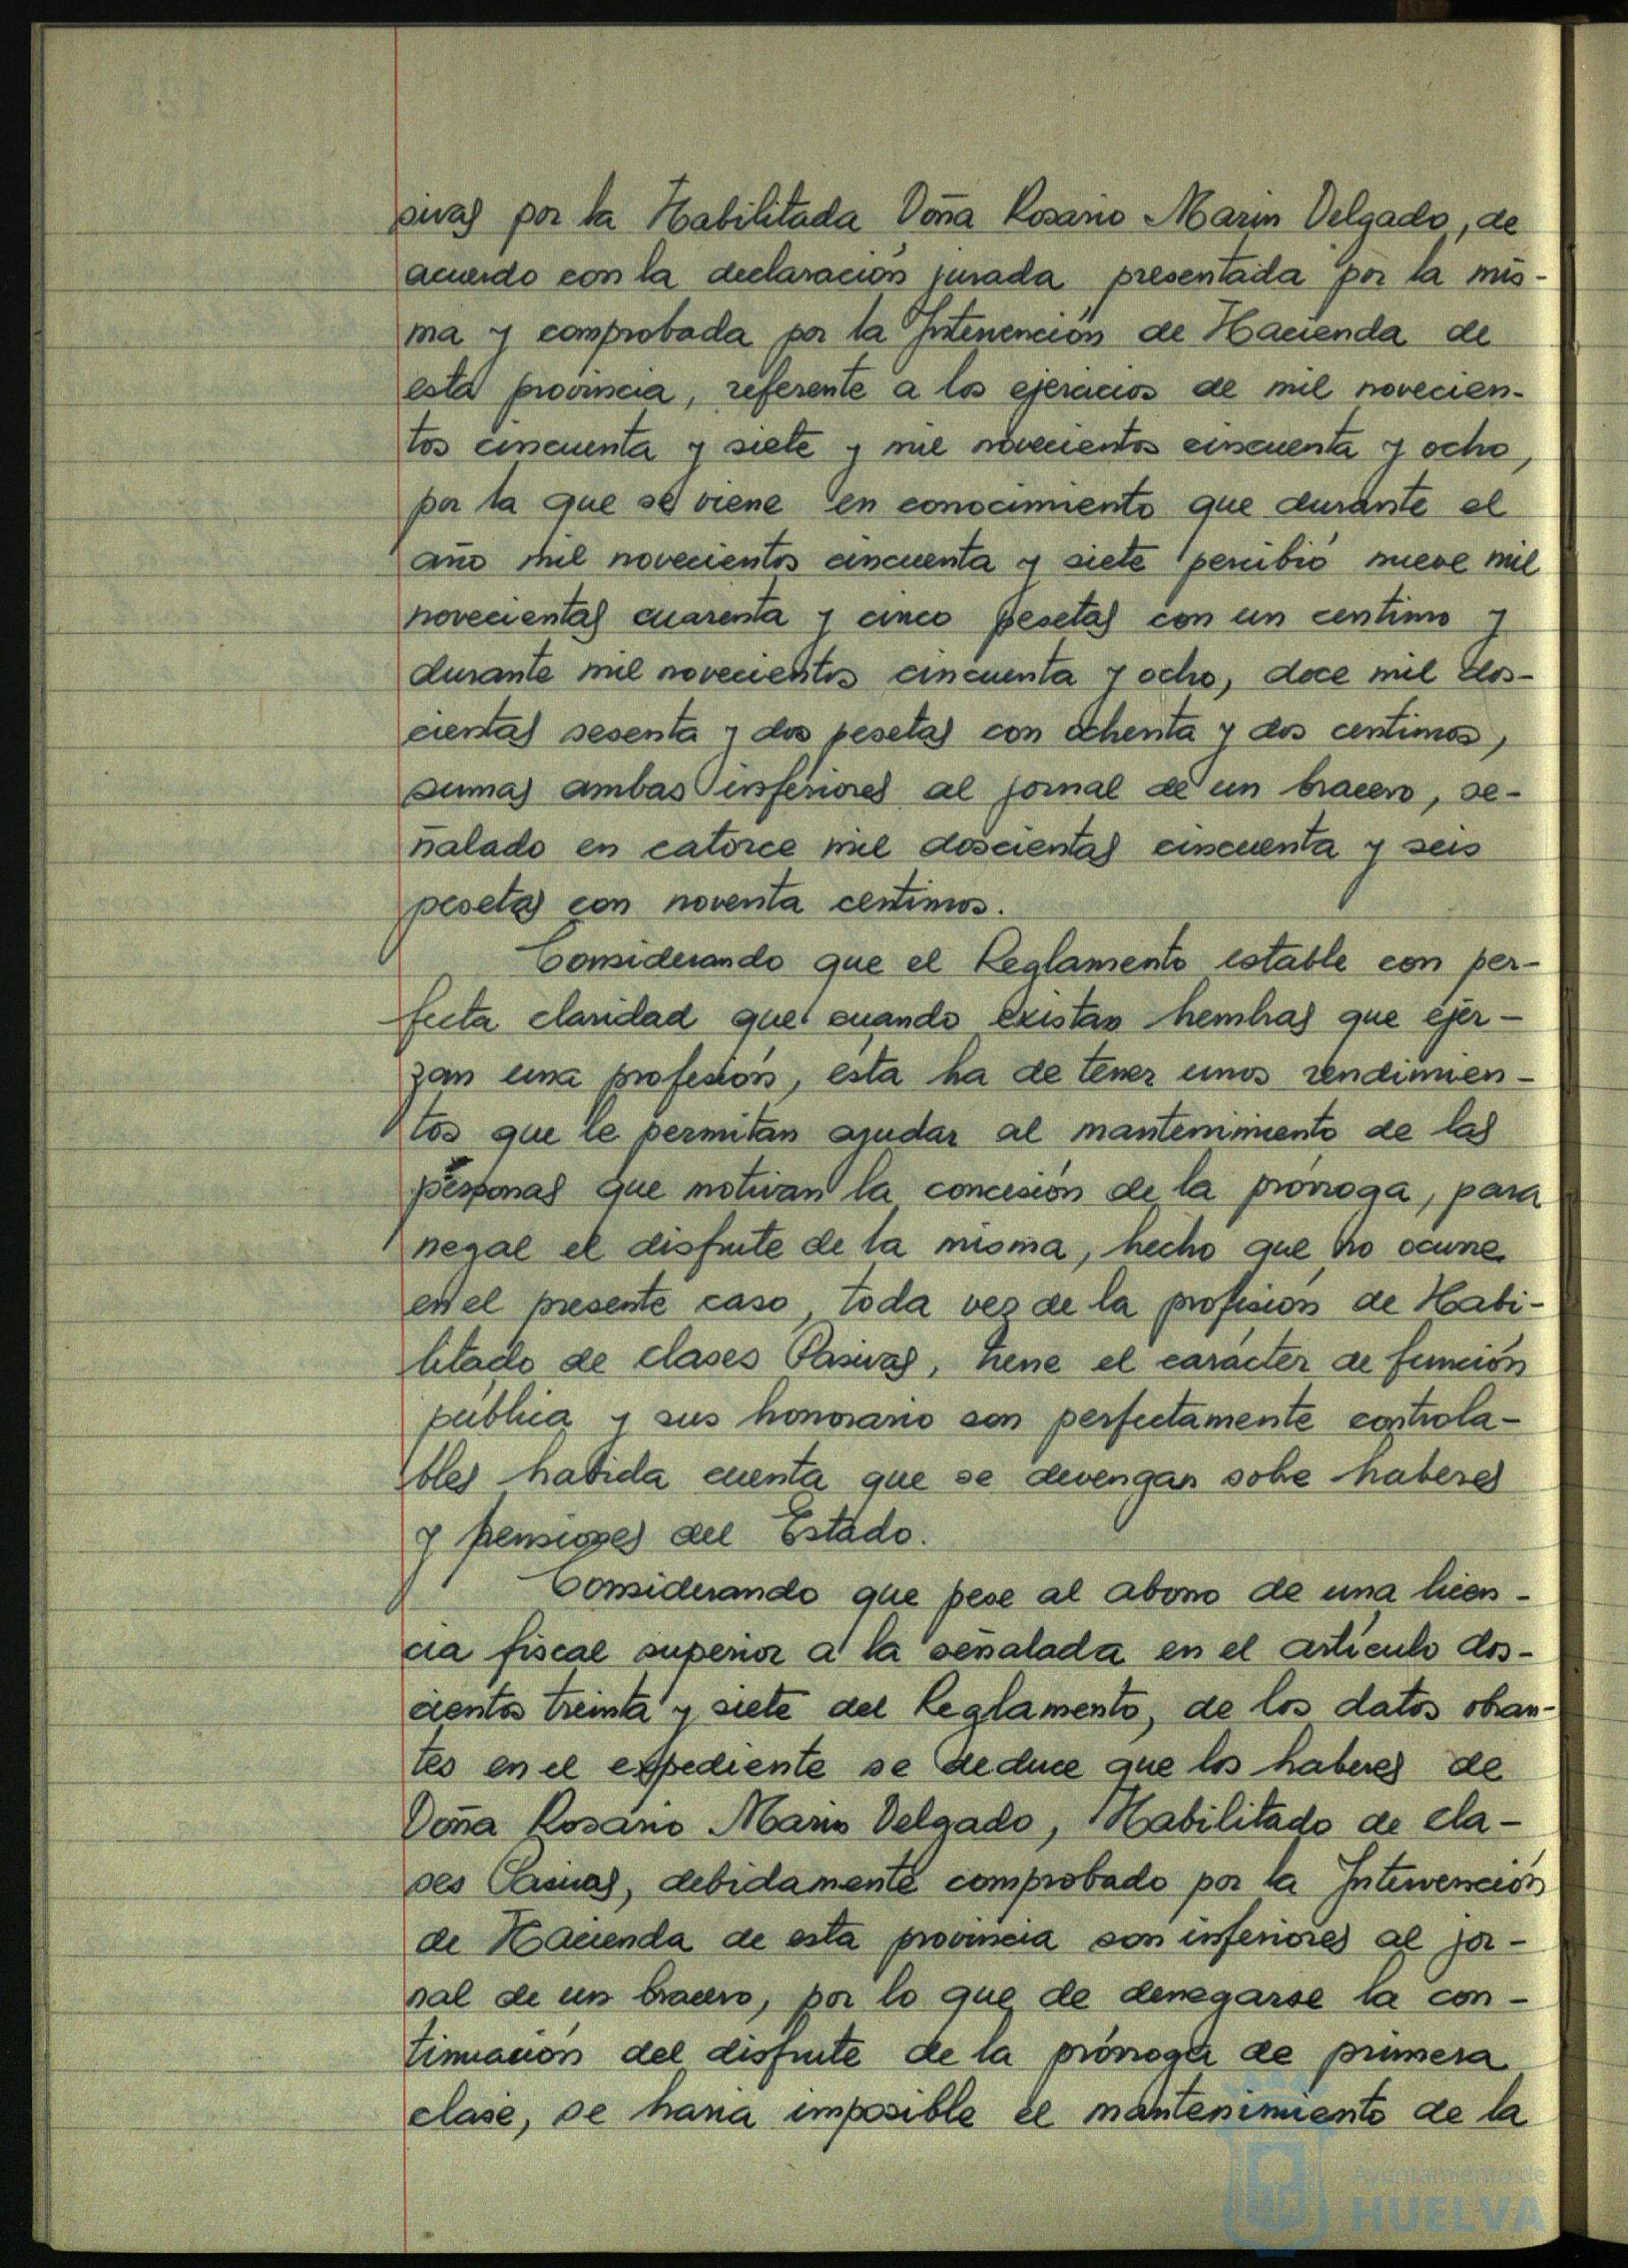 sivas por la Habilitada Doña Rosario Marin Delgado, de
acuerdo con la declaración jurada presentada por la mis-
ma y comprobada por la Intervención de Hacienda de
esta provincia, referente a los ejercicios de mil novecien-
tos cincuenta y siete y mil novecientos cincuenta y ocho,
por la que se viene en conocimiento que durante el
año mil novecientos cincuenta y siete percibió nueve mil
novecientas cuarenta y cinco pesetas con un centimo y
durante mil novecientos cincuenta y ocho, doce mil dos-
cientas sesenta y dos pesetas con ochenta y dos centimos,
sumas ambas inferiores al jornal de un bracero, se-
ñalado en catorce mil doscientas cincuenta y seis
pesetas con noventa centimos.
Considerando que el Reglamento estable con per-
fecta claridad que cuando existan hembras que ejer-
zan una profesión, ésta ha de tener unos rendimien-
tos que le permitan ayudar al mantenimiento de las
personas que motivan la concesión de la prórroga, para
negal el disfrute de la misma, hecho que no ocurre
en el presente caso, toda vez de la profisión de Habi-
litado de clases Pasivas, tiene el carácter de función
pública y sus honorario son perfectamente controla-
bles habida cuenta que se devengan sobre haberes
y pensiones del Estado.
Considerando que pese al abono de una licen-
cia fiscal superior a la señalada en el artículo dos-
cientos treinta y siete del Reglamento, de los datos obran-
tes en el expediente se deduce que los haberes de
Doña Rosario Marin Delgado, Habilitado de cla-
ses Pasivas, debidamente comprobado por la Intervención
de Hacienda de esta provincia son inferiores al jor-
nal de un bracero, por lo que de denegarse la con-
tinuación del disfrute de la prórroga de primera
clase, se haria imposible el mantenimiento de la
Ayuntamiento de
HUELVA